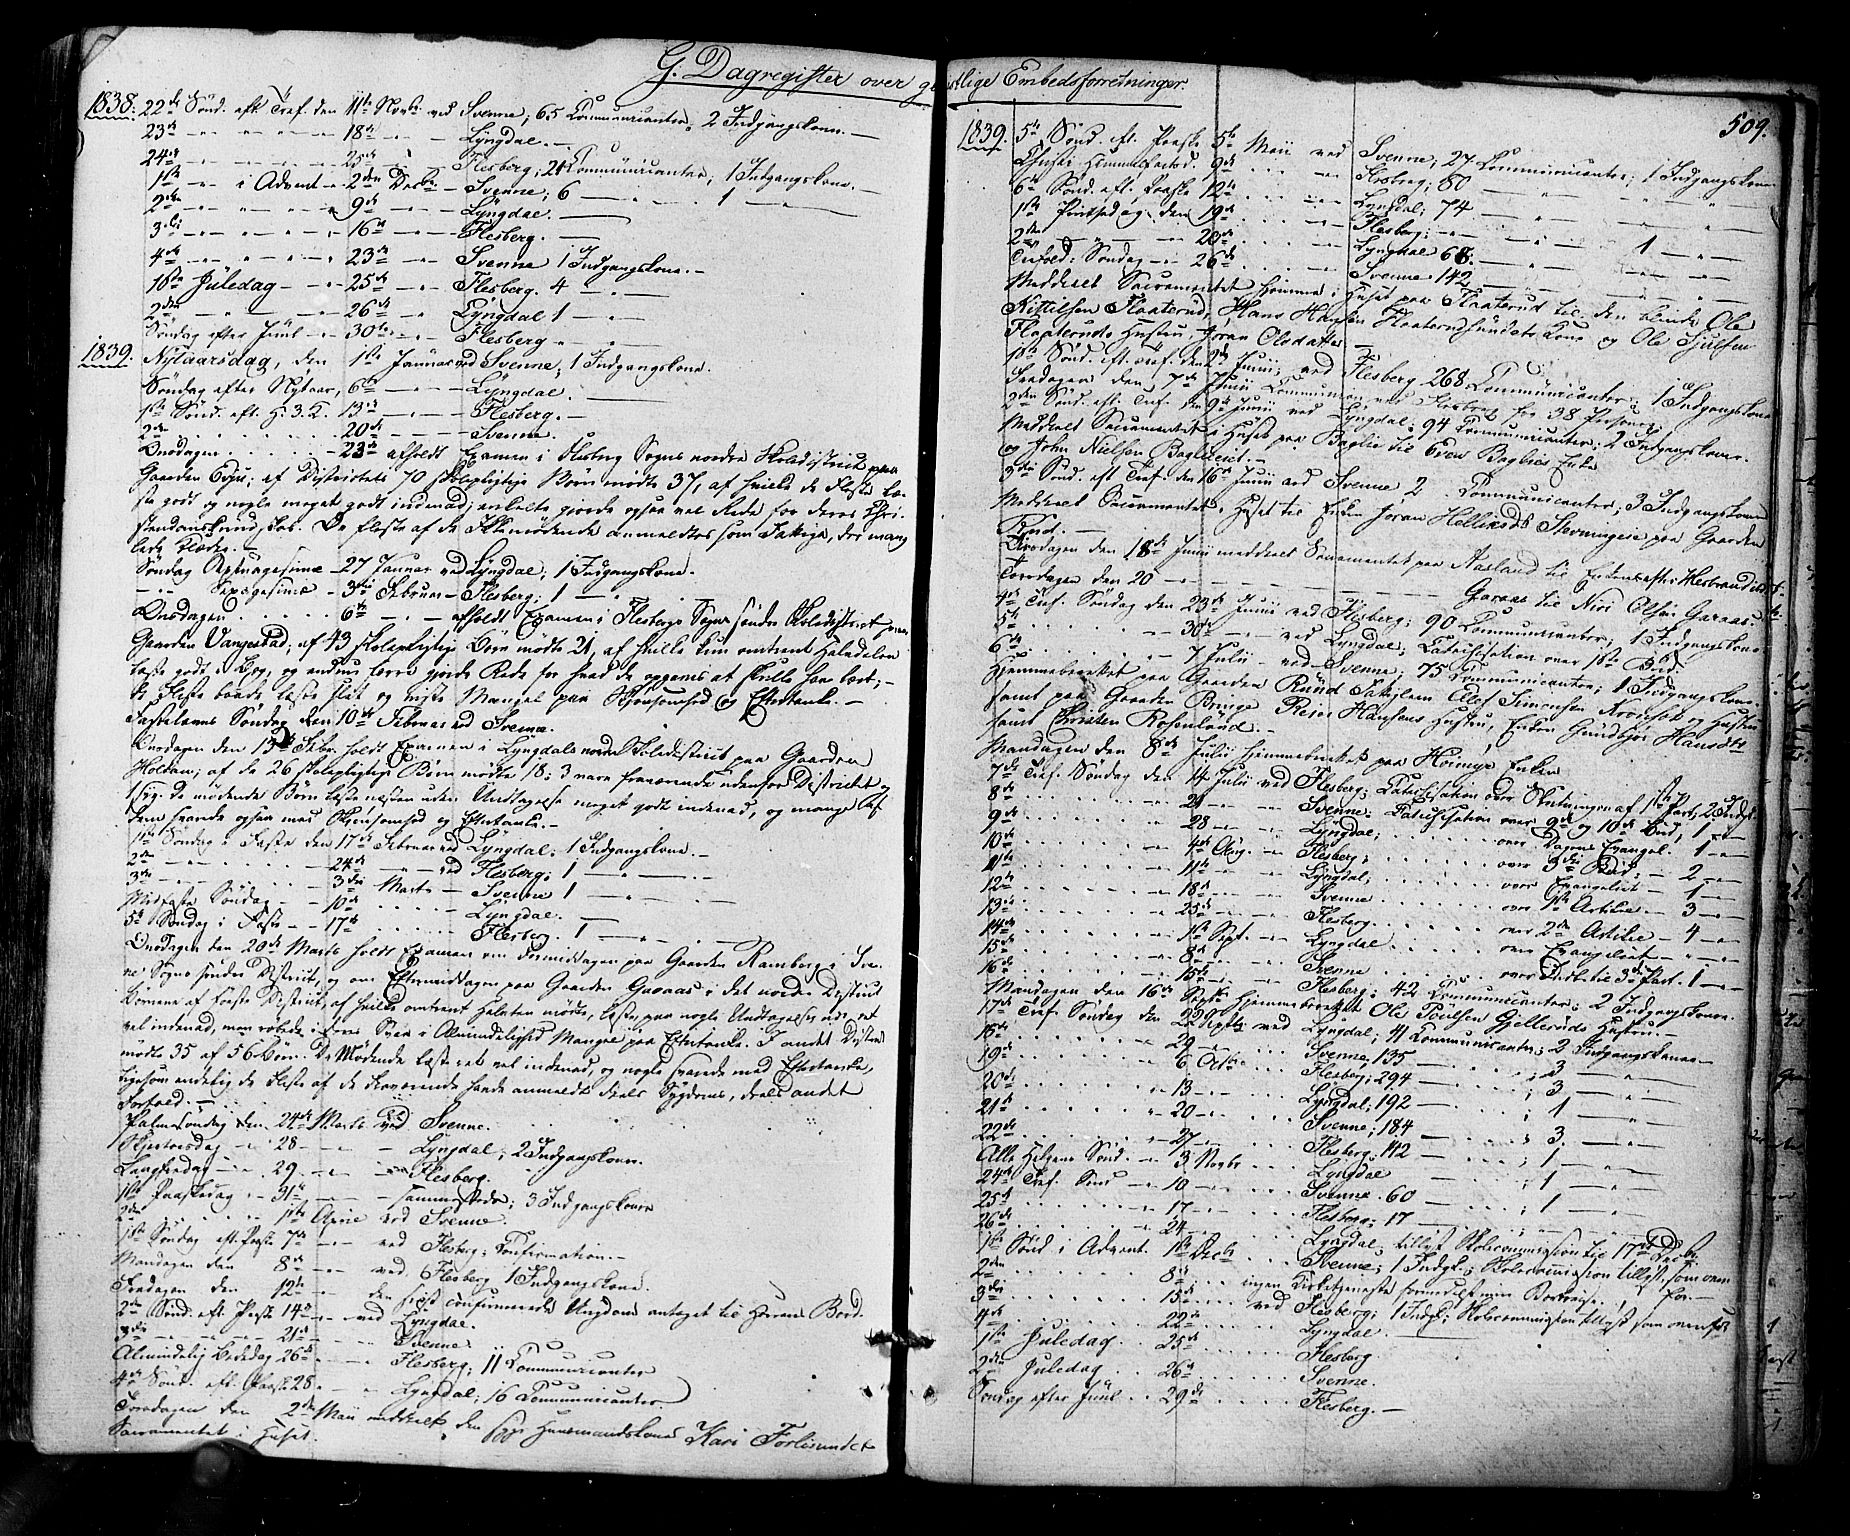 G. Dagregister over geistlige Embedsforretninger.
1838. 22de Sönd. eft. Tref. den 11te Novbr ved Svenne; 65 Communicanter, 2 Indgangskoner.
23de 18de Lyngdal.
24de 25de Flesberg; 21 Communicanter; 1 Indgangskone.
1ste i Advent 2den Decbr Svenne; 6 1
2den 9de Lyngdal.
3die 16de Flesberg.
4de 23de Svenne 1 Indgangskone.
1ste Juledag 25de Flesberg. 4
2den 26de Lyngdal 1
Söndag efter Juul 30te Flesberg
1839. Nytaarsdag, den 1ste Januar ved Svenne; 1 Indgangskone.
Söndag efter Nytaar, 6te Lyngdal.
1ste Sönd. eft. H. 3. K. 13de Flesberg.
2den 20de Svenne.
Onsdagen 23de afholdt Examen i Flesberg Sogns nordre Skoledistrict paa
Gaarden Evju; af Districtets 70 skolepligtige Börn mödte 37, af hvilke de Fleste læ-
ste godt og nogle meget godt indenad; enkelte gjorde ogsaa vel Rede for deres Chri-
stendomskundskab. De fleste af de Ikkemödende anmeldtes som fattige, der mang
lede Klæder.
Söndag Septuagesima 27 Januar ved Lyngdal; 1 Indgangskone.
Sexagesima 3die Februar Flesberg; 1
Onsdagen 6te afholdt Examen i Flesbergs Sogns söndre Skoledistrict paa
Gaarden Vangestad; af 43 skolepligtige Börn mödte 21, af hvilke kun omtrent Halvdelen
læste godt i Bog, og endnu færre gjorde Rede for hvad de opgaves at skulle have lært;
de Fleste baade læste slet og viste Mangel paa Skjönsomhed og Eftertanke.
Fastelavns Söndag den 10de Februar ved Svenne.
Onsdagen den 13de Febr. holdt Examen i Lyngdals nordre Skoledistrict paa Gaarden
Holtan; af de 26 skolepligtige Börn mödte 18; 3 vare fraværende udenfor Districtet og
syg. De mödende Börn læste næsten uden Undtagelse meget godt indenad, og mange af
dem svarede ogsaa med Skjönsomhed og Eftertanke.
1ste Söndag i Faste den 17de Februar ved Lyngdal; 1 Indgangskone.
2den 24de ved Flesberg; 1
3die 3die Marts Svenne 1
Midfaste Söndag 10de Lyngdal.
5te Söndag i Faste 17de Flesberg. 1
Onsdagen den 20de Marts holdt Examen om Formiddagen paa Gaarden Ramberg i Sve-
ne Sogns söndre District, og om Eftermiddagen paa Gaarden Gavaas i det nordre District
Börnene af förste District, af hvilke omtrent Halvten mödte, læste, paa nogle Undtagelser nær, ret
vel indenad, men röbede i deres Svar i Almindelighed Mangel paa Eftertanke. I andet District
mödte 35 af 56 Börn. De Mödende læste ret vel indenad, og nogle svarede med Eftertanke,
ligesom endelig de Fleste af de fraværende havde anmeldt deels Sygdoms, deels andet
Forfald.
Palmesöndag den 24de Marts ved Svenne.
Skjertorsdag 28 Lyngdal; 2 Indgangskoner.
Langfredag 29 Flesberg.
1ste Paaskedag 31te sammesteds; 3 Indgangskoner
2den 1ste April ved Svenne.
1ste Söndag eft. Paaske 7de ved Flesberg; Confirmation.
Mandagen den 8de ved Flesberg 1 Indgangskone.
Fredagen den 12te den först confirmerede Ungdom antaget til Herrens Bord.
2den Sönd. eft. Paaske 14de ved Lyngdal.
3die 21de Svenne
Almindelig Bededag 26de Flesberg; 11 Communicanter
4de Sönd. eft. Paaske 28 Lyngdal; 16 Communicanter.
Torsdagen den 2den Maii meddeelt den syge Huusmandskone Kari Forlisundet
Sacramentet i Huset.
509.
1839. 5te Sönd. eft. Paaske 5te Maii ved Svenne; 27 Communicanter; 1 Indgangskone
Christi Himmelfartsd. 9de Flesberg; 80
6te Sönd. eft. Paaske 12te Lyngdal; 74
1ste Pintsedag, den 19de Flesberg; 1
2den 20de Lyngdal 68.
Trefold: Söndag 26de Svenne 142
Meddeelt Sacramentet hjemme i Huset paa Flaaterud til den blinde Ole
Kittilsen Flaaterud, Hans Hansen Flaaterudsundets Kone og Ole Tjulsen
Flaateruds Hustru, Joran Olsdatter
1ste Sönd. eft. Tref. den 2den Junii, ved Flesberg 268 Communicanter; 1 Indgangskone
Fredagen den 7de Junii Communion ved Flesberg for 38 Personer.
2den Sönd. eft. Tref. den 9de Junii ved Lyngdal; 94 Communicanter; 2 Indgangskoner.
Meddeelt Sacramentet i Huset paa Baglie til Even Baglies Enke
og John Nielsen Baglieeiet.
3die Sönd. eft. Tref. den 16de Junii ved Svenne 2 Communicanter; 3 Indgangskoner
Meddeelt Sacramentet i Huset til Enken Joran Helliksd. Stevningeie paa Gaarden
Ruud.
Tirsdagen den 18de Junii meddeelt Sacramentet paa Aasland til Enken
Torsdagen den 20 Gavaas til Niri Olsen Gavaas
4de Tref. Söndag den 23de Junii ved Flesberg; 90 Communicanter; 1 Indgangskone
5te 30te ved Lyngdal; Catechisation over 1ste Bud
6te 7 Julii ved Svenne; 75 Communicanter; 1 Indgangskone.
Hjemmeberettet paa Gaarden Ruud Olef Simonsen og Hustru
samt paa Gaarden Bruge Reier Hansens Hustru, Enken Gunbjör Hansdtr
samt Christen Rosenlund.
Mandagen den 8de Julii hjemmeberettet paa Hoimyr Enken
7de Tref. Söndag den 14 Julii ved Flesberg; Catechisation over Slutningen af 1ste Part; 2 Indgk.
8de 21 Svenne. Catechisation over 9de og 10de Bud; 1
9de 28 Lyngdal; over Dagens Evangel. 1
10de 4de Aug. Flesberg; over 3die Bud; 2
11te 11te Lyngdal; over Evangeliet 1
12te 18de Svenne over 1ste Artikel 3
13de 25de Flesberg. over 2den Artikel 4
14de 1ste Sept. Lyngdal. over Evangeliet
15de 8de Svenne over 3die Part. 1
16de 15de Flesberg; 42 Communicanter; 2 Indgangskoner.
Mandagen den 16de Septbr hjemmeberettet Ole Povelsen Gjelleruds Hustru.
17de Tref. Söndag den 22de Septbr ved Lyngdal; 41 Communicanter; 2 Indgangskoner
18de 29 Svenne, 135 3
19de 6 Octbr Flesberg; 294 3
20de 13 Lyngdal; 192 1
21de 20 Svenne; 184 3.
22de 27 Flesberg; 142 1
Alle Helgens Sönd. 3 Novbr Lyngdal
24de Tref. Sönd 10 Svenne. 60 1
25de 17 Flesberg; 17
26de 24 Lyngdal; tillyst Skolecommission til 17de Decbr.
1ste Sönd i Advent. 1ste Decbr Svenne; 1 Indgk.; Skolecommission tillyst, som oven
2den 8de ingen Kirketjeneste formedelst min Bortreise.
3die 15de ved Flesberg; 1 Indgk; Skolecommission tillyst som ovenfor
4de 22de Lyngdal.
1ste Juledag 25de Flesberg
2den Juledag 26de Svenne.
Söndag efter Juul 29de Flesberg.